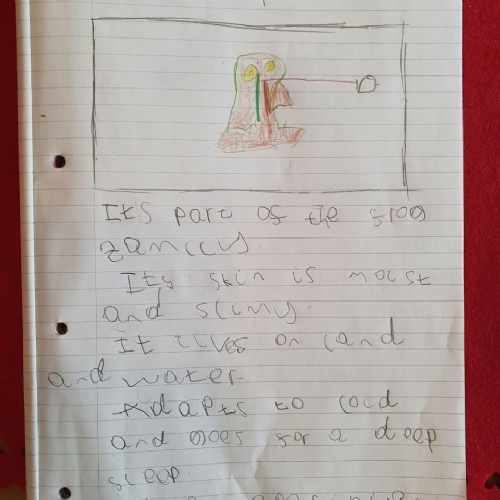 Its part of the frog
family
Its skin is moist
and slimy.
It lives on land
and water.
Adapts to cold
and goes for a deep
sleep